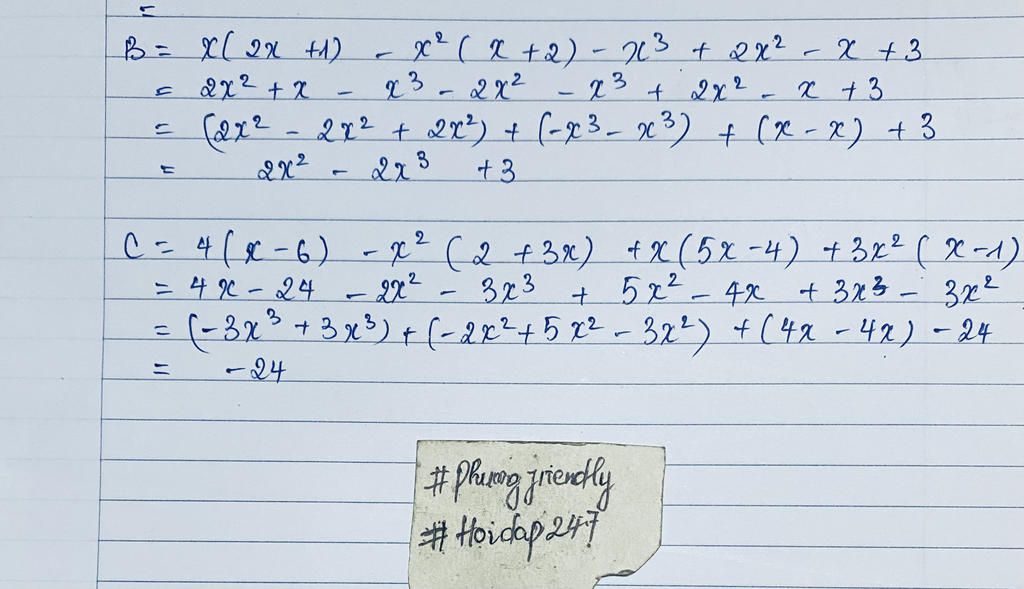 =
B = x( 2x +1) - x² ( x +2) - x³ + 2x² - x +3
= 2x² + x - x³ - 2x² - x³ + 2x² - x +3
= (2x² - 2x² + 2x²) + (-x³ - x³) + (x - x) +3
= 2x² - 2x³ +3
C = 4(x-6) - x² (2 +3x) +x(5x-4) +3x² (x-1)
= 4x - 24 - 2x² - 3x³ + 5x² - 4x + 3x³ - 3x²
= (-3x³ +3x³) + (-2x² +5x² - 3x²) +(4x - 4x) - 24
= -24
# Phuong friendly
# Hoidap247